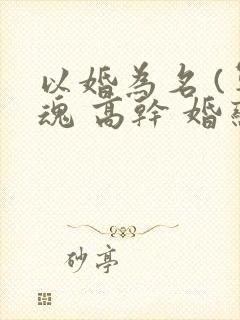 以婚為名(
魂 高幹 婚
砂亭